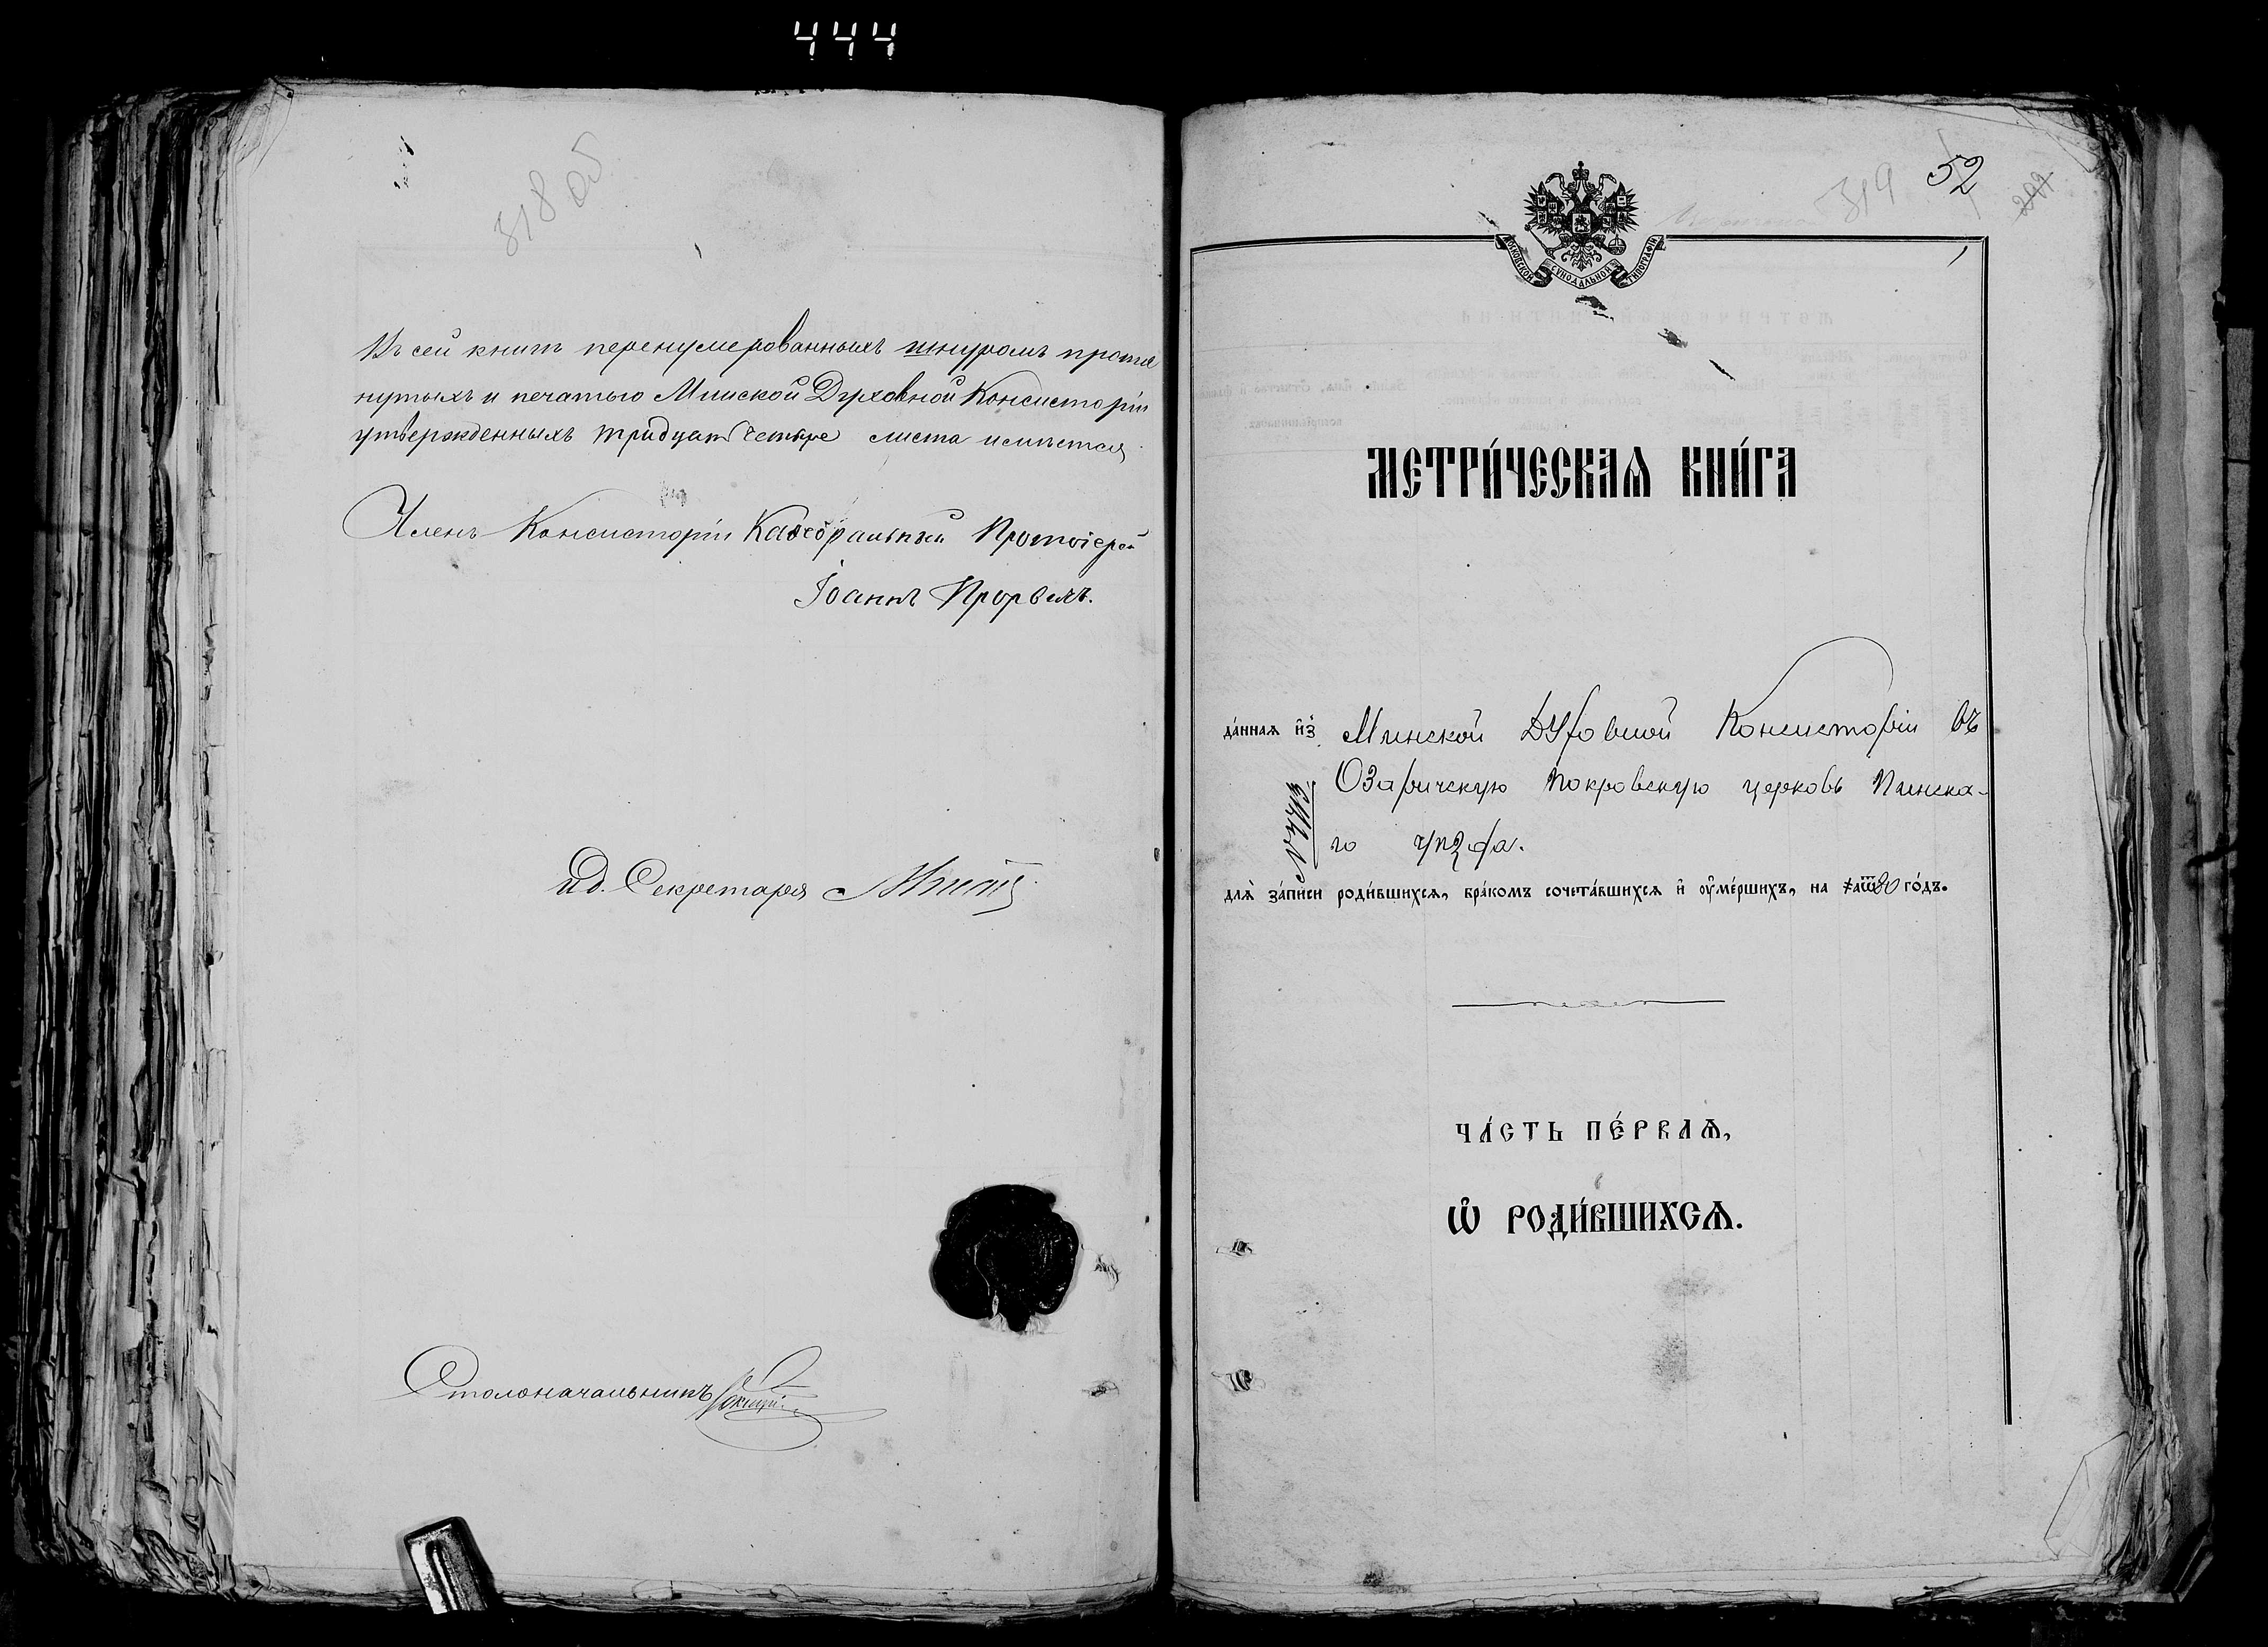 444
318 об
Въ сей книгѣ перенумерованныхъ шнуромъ протя
нутыхъ и печатью Минской Духовной Консисторіи
утвержденныхъ тридцать четыре листа имѣется
Членъ Консисторіи Каѳедральный Протоіерей
Іоаннъ
ид. Секретаря
Столоначальникъ
319 52
МОСКОВСКОЙ СѴНОДАЛЬНОЙ ТИПОГРАФІИ
МЕТРИ́ЧЕСКАѦ КНИ́ГА
да́ннаѧ и҆з̾ Минской Духовной Консисторіи въ
Озаричскую Покровскую церковь Пинска-
го уѣзда.
длѧ̀ за́писи роди́вшихсѧ, бра́комъ сочета́вшихсѧ и҆ ᲂу҆ме́ршихъ, на ҂аѿ90 го́дъ.
ЧА́СТЬ ПЕ́РВАѦ,
Ѽ РОДИ́ВШИХСѦ.